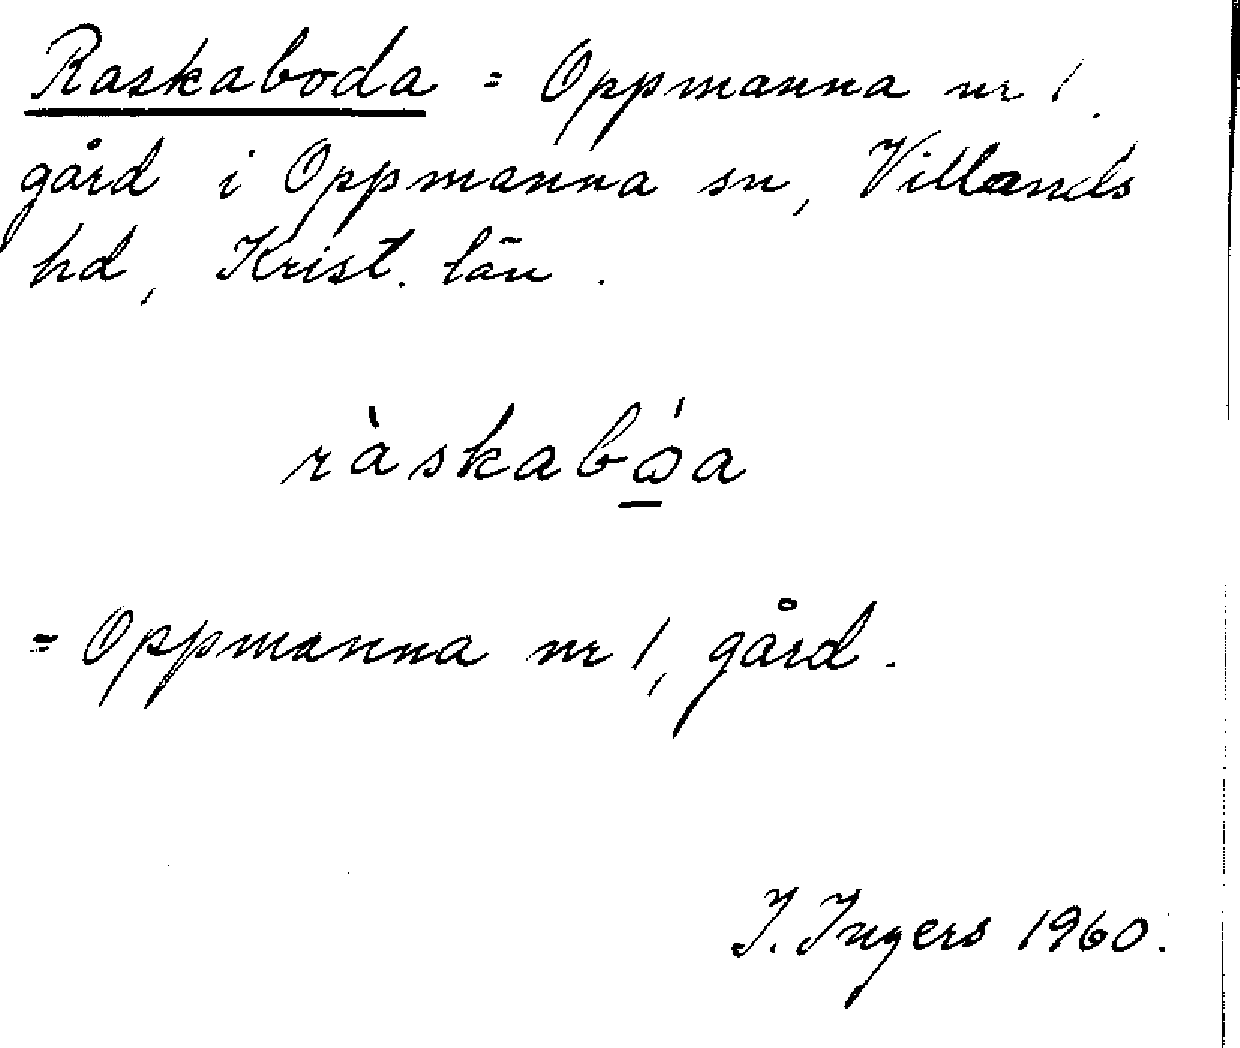 Raskaboda = Oppmanna nr 1.
gård i Oppmanna sn, Villands
hd, Krist. län.
ràskabώ̲a
= Oppmanna nr 1, gård.
I. Ingers 1960.